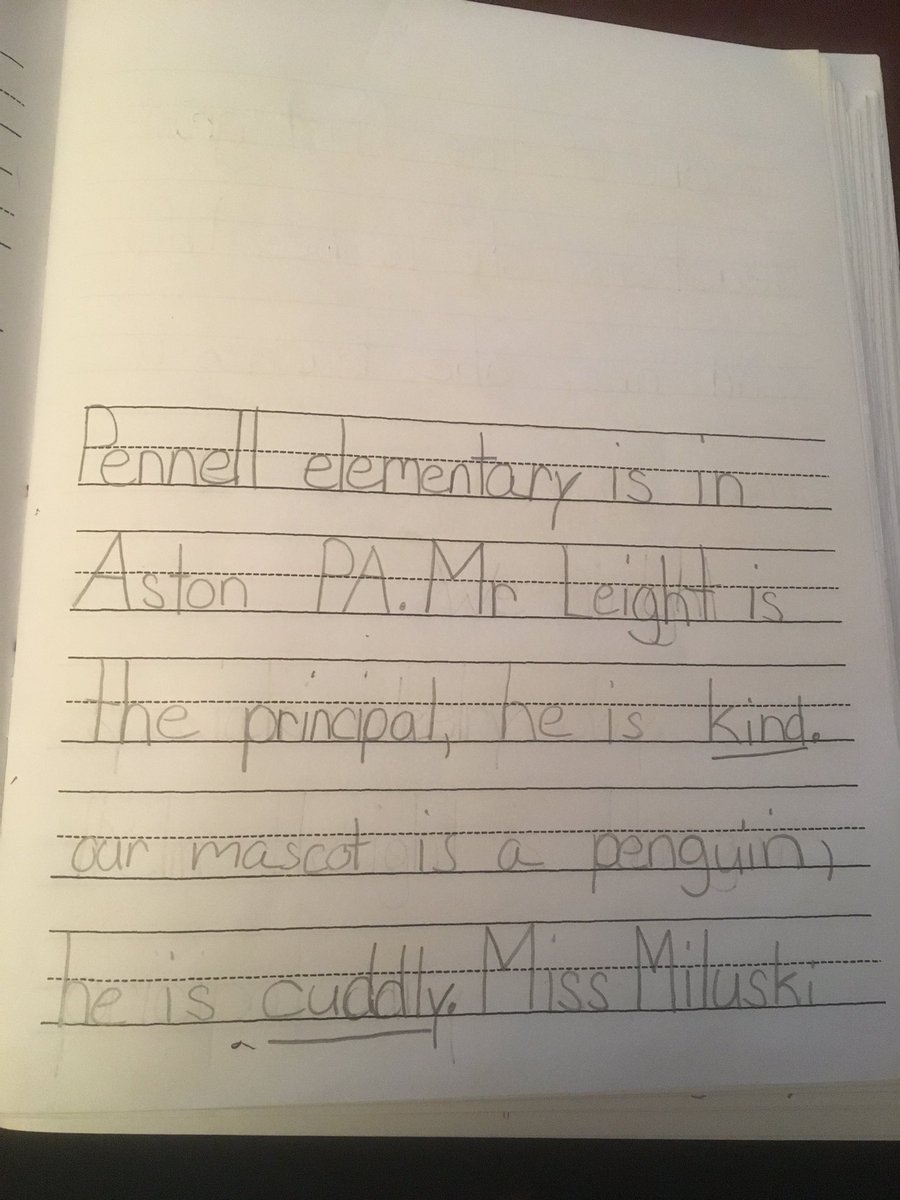 Pennell elementary is in
Aston PA. Mr Leight is
the principal, he is kind.
our mascot is a penguin,
he is cuddly. Miss Miluski